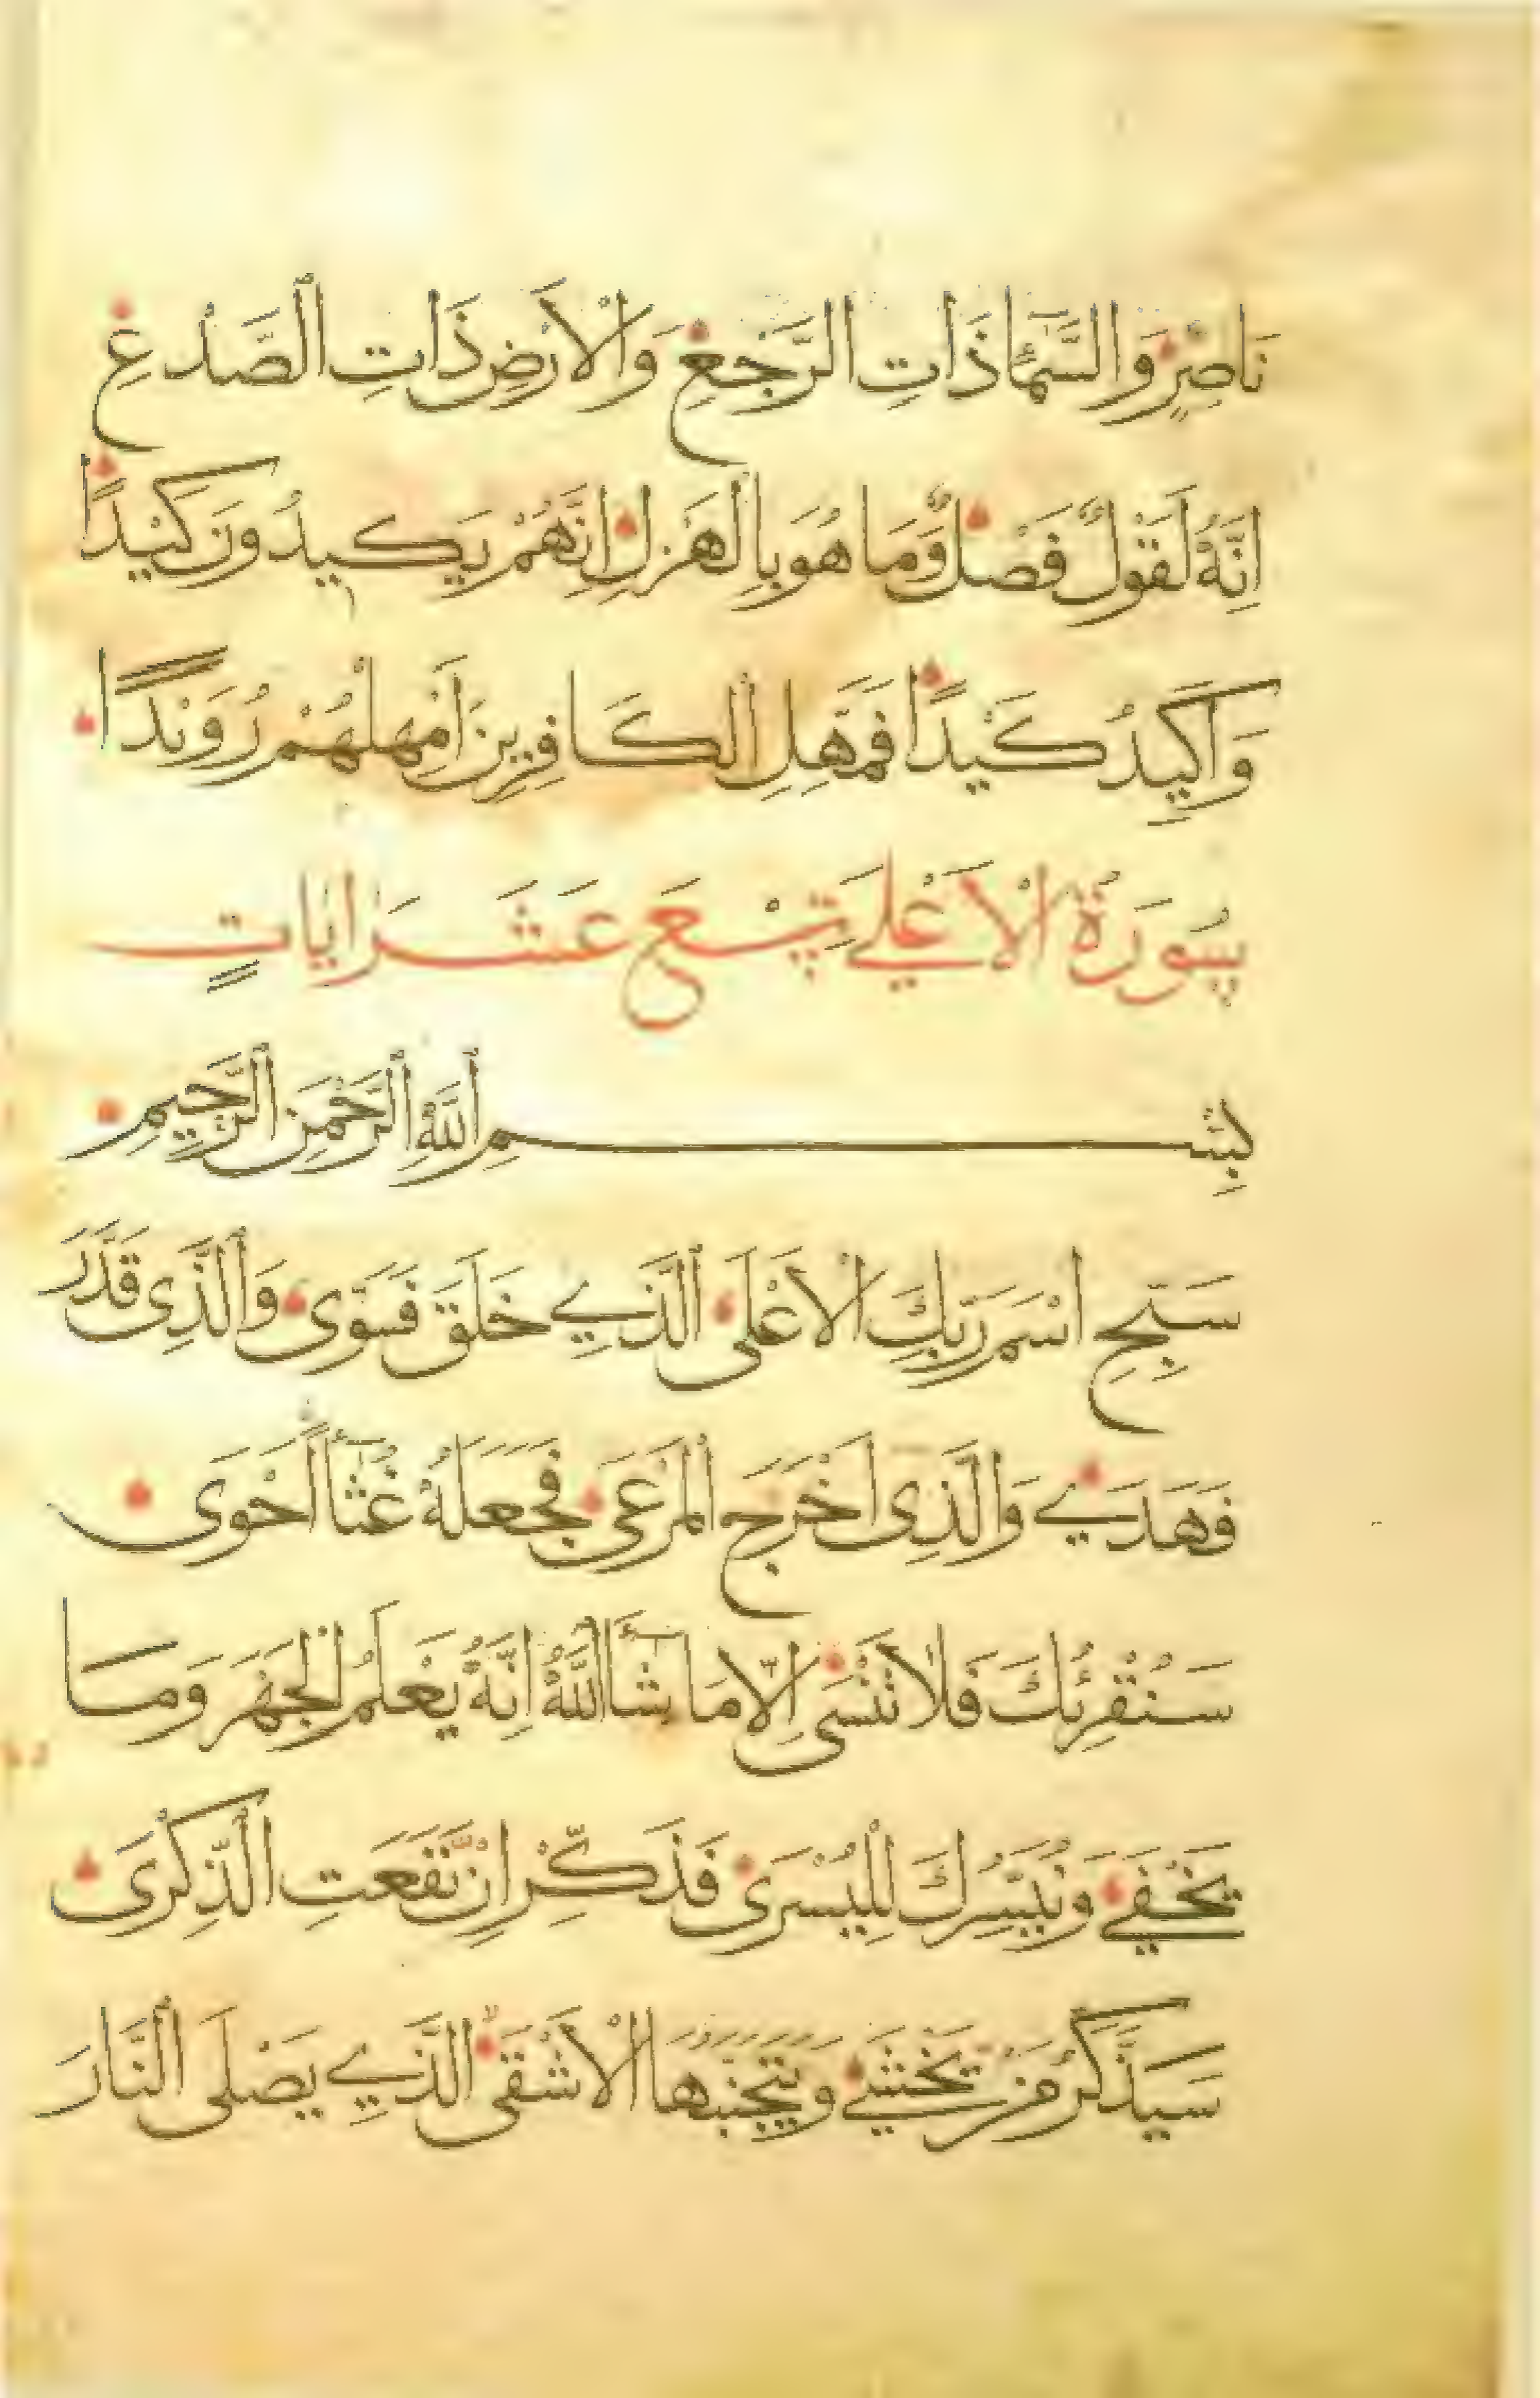 نَاصِرٍ وَالسَّمَآءِ ذَاتِ الرَّجْعِ وَالْاَرْضِ ذَاتِ الصَّدْعِ
اِنَّهُ لَقَوْلٌ فَصْلٌ وَمَا هُوَ بِالْهَزْلِ اِنَّهُمْ يَكِيدُونَ كَيْدًا
وَاَكِيدُ كَيْدًا فَمَهِّلِ الْكَافِرِينَ اَمْهِلْهُمْ رُوَيْدًا
سُورَةُ الْاَعْلَى تِسْعَ عَشَرَ اٰيَاتٍ
بِسْمِ اللَّهِ الرَّحْمٰنِ الرَّحِيمِ
سَبِّحِ اسْمَ رَبِّكَ الْاَعْلَى الَّذِي خَلَقَ فَسَوَّى وَالَّذِى قَدَّرَ
فَهَدَي وَالَّذِى اَخْرَجَ الْمَرْعَى فَجَعَلَهُ غُثَآءً اَحْوَى
سَنُقْرِئُكَ فَلَا تَنْسَى اِلَّا مَا شَآءَ اللَّهُ اِنَّهُ يَعْلَمُ الْجَهْرَ وَمَا
يَخْفَي وَنُيَسِّرُكَ لِلْيُسْرَى فَذَكِّرْ اِنْ نَّفَعَتِ الذِّكْرَى
سَيَذَّكَّرُ مَنْ يَّخْشَي وَيَتَجَنَّبُهَا الْاَشْقَى الَّذِي يَصْلَى النَّارَ